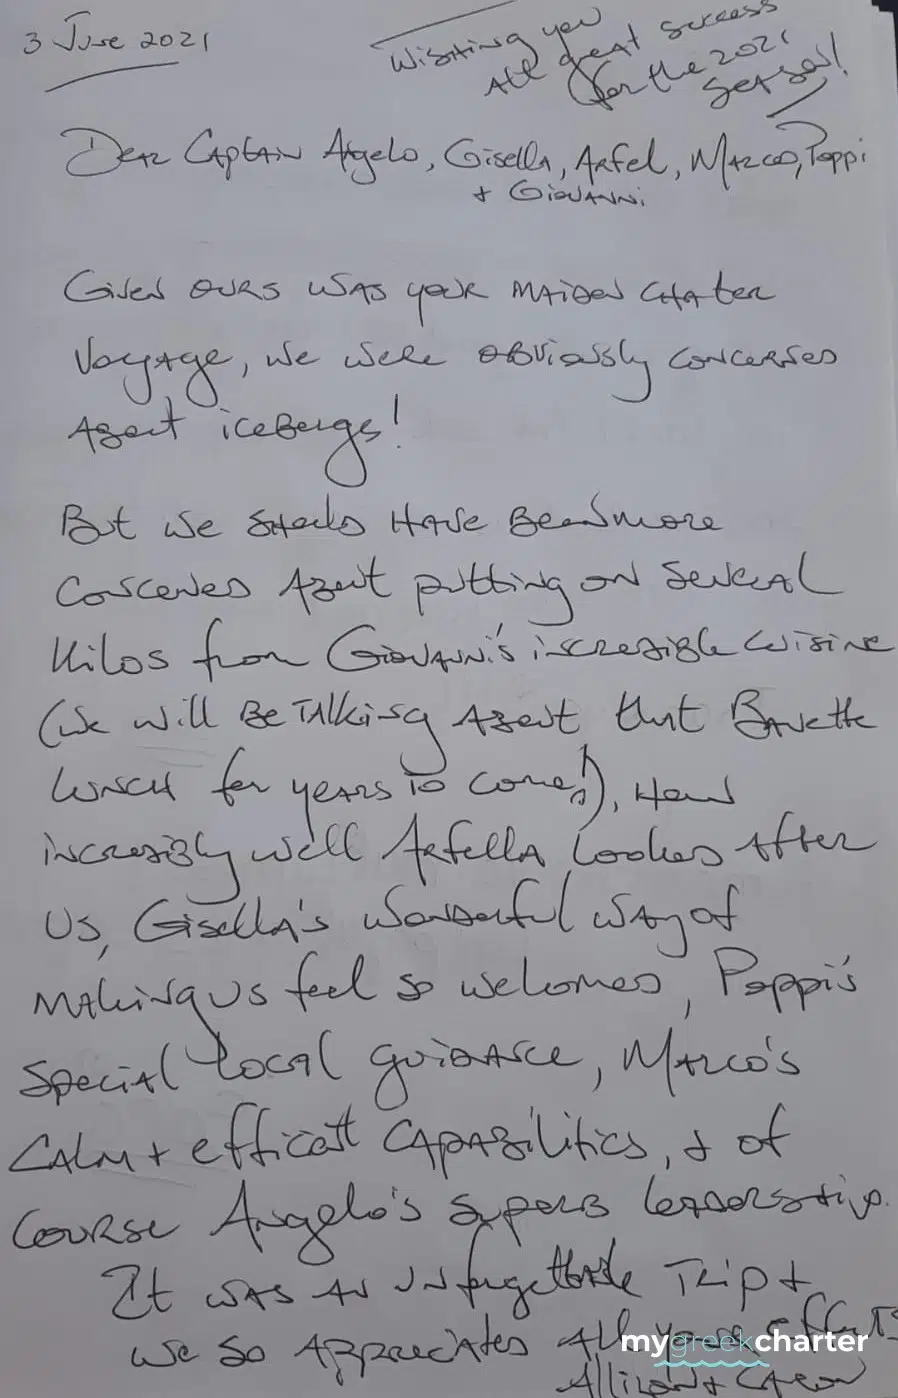 3 June 2021
Wishing you
All great success
for the 2021
season!
Dear Captain Angelo, Gisella, Arfel, Marco, Poppi
+ Giovanni
Given ours was your maiden charter
voyage, we were obviously concerned
about icebergs!
But we should have been more
concerned about putting on several
kilos from Giovanni's incredible cuisine
(we will be talking about that
lunch for years to come!), how
incredibly well Arfella looked after
us, Gisella's wonderful way of
making us feel so welcomed, Poppi's
special local guidance, Marco's
calm + efficient capabilities, + of
course Angelo's superb leadership.
It was an unforgettable trip +
we so appreciated all your efforts
Allison +
mygreekcharter